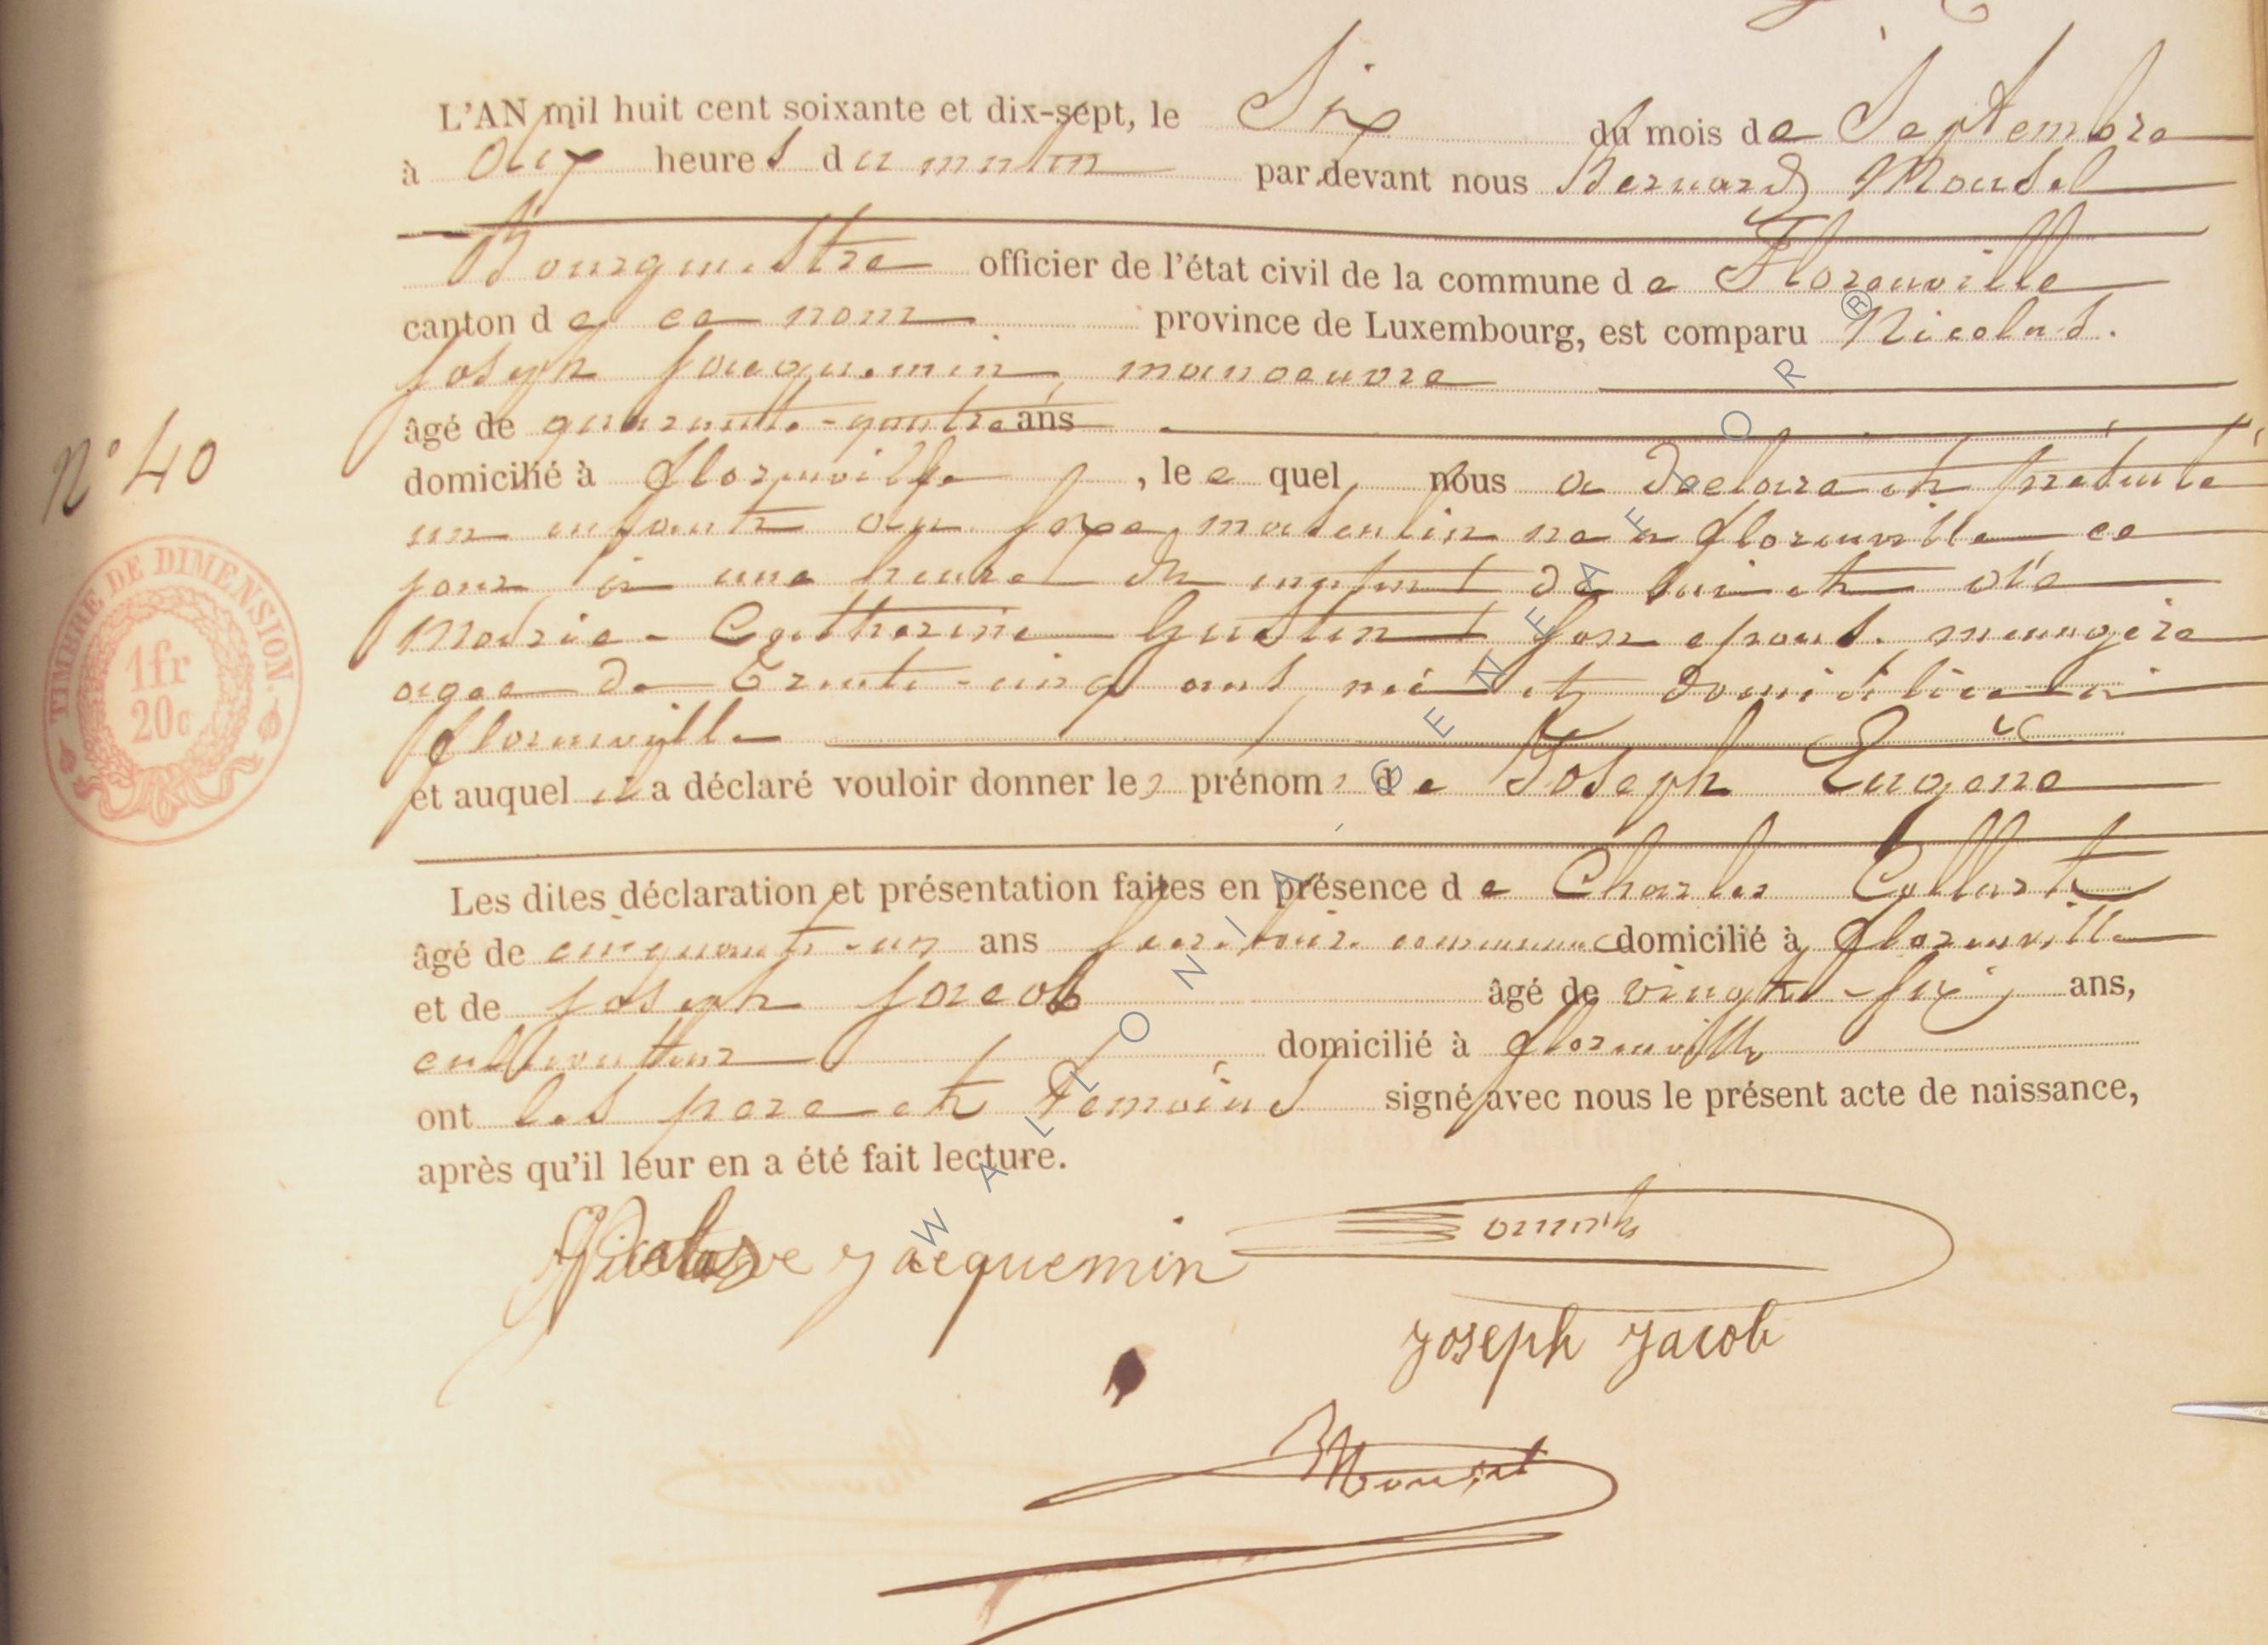 L'AN mil huit cent soixante et dix-sept, le Six du mois de Septembre
à dix heures du matin par devant nous Bernard Mousel
Bourgmestre officier de l'état civil de la commune de Florenville
canton de ce nom province de Luxembourg, est comparu Nicolas
Joseph Jacquemin, manoeuvre
âgé de quarante-quatre ans
N° 40
domicilié à Florenville, lequel nous a declaré et présenté
un enfant du sexe masculin né a florenville ce
jour à une heure du de lui et de
Marie-Catherine Gustin son epouse menagère
agee de Trente-cinq ans, née et domiciliée à
florenville
et auquel il a déclaré vouloir donner les prénoms de Joseph Eugène
Les dites déclaration et présentation faites en présence de Charles Collart
âgé de cinquante-un ans secretaire communal domicilié à florenville
et de Joseph Jacob âgé de vingt-six ans,
cultivateur domicilié à florenville
ont les pere et temoins signé avec nous le présent acte de naissance,
après qu'il leur en a été fait lecture.
TIMBRE DE DIMENSION.
1fr
20c
Jacquemin
Joseph Jacob
WALLONIA - GENEAFLOR ®